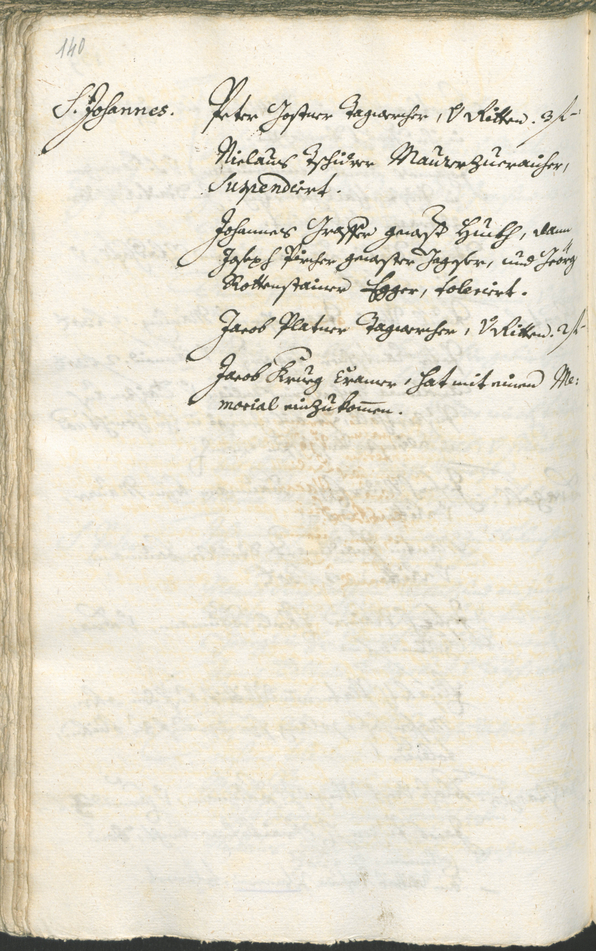 140
S. Johannes.
Peter Gostner Tagwercher, V Ritten. 3 f
Niclaus Tschurer Maurerzueraicher,
Suspendiert.
Johannes Grasser gewast Hueth, dann
Joseph Pircher gewaster Jegger, und Georg
Rottenstainer Egger, toleriert.
Jacob Platner Tagwercher, V Ritten. 2 f
Jacob Krueg Cramer, hat mit einen Me:
morial einzukommen.